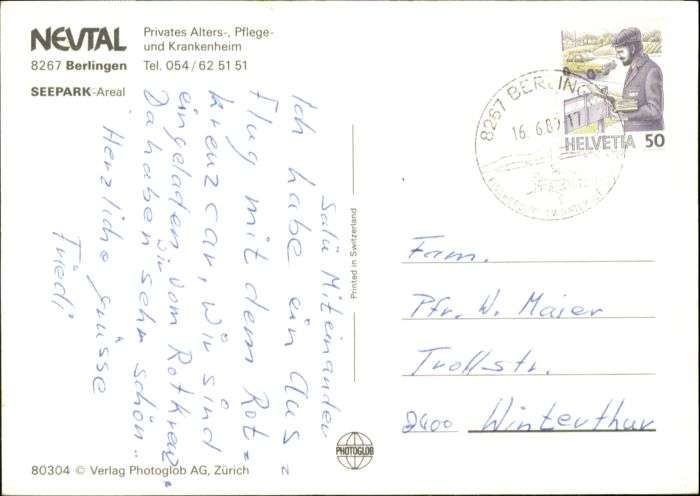 NEUTAL
Privates Alters-, Pflege-
und Krankenheim
8267 Berlingen Tel. 054/62 51 51
SEEPARK-Areal
Salü Miteinander
Ich habe ein Aus=
flug mit dem Rot=
kreuzcar, wir sind
eingeladen vom Rotkreuz.
Da haben wir sehr schön..
Herzliche Grüsse
Friedi
Printed in Switzerland
8267 BERLINGEN
16.6.8 17
HELVETIA 50
Fam.
Pfr. W. Maier
Trollstr.
8400 Winterthur
PHOTOGLOB
80304 © Verlag Photoglob AG, Zürich